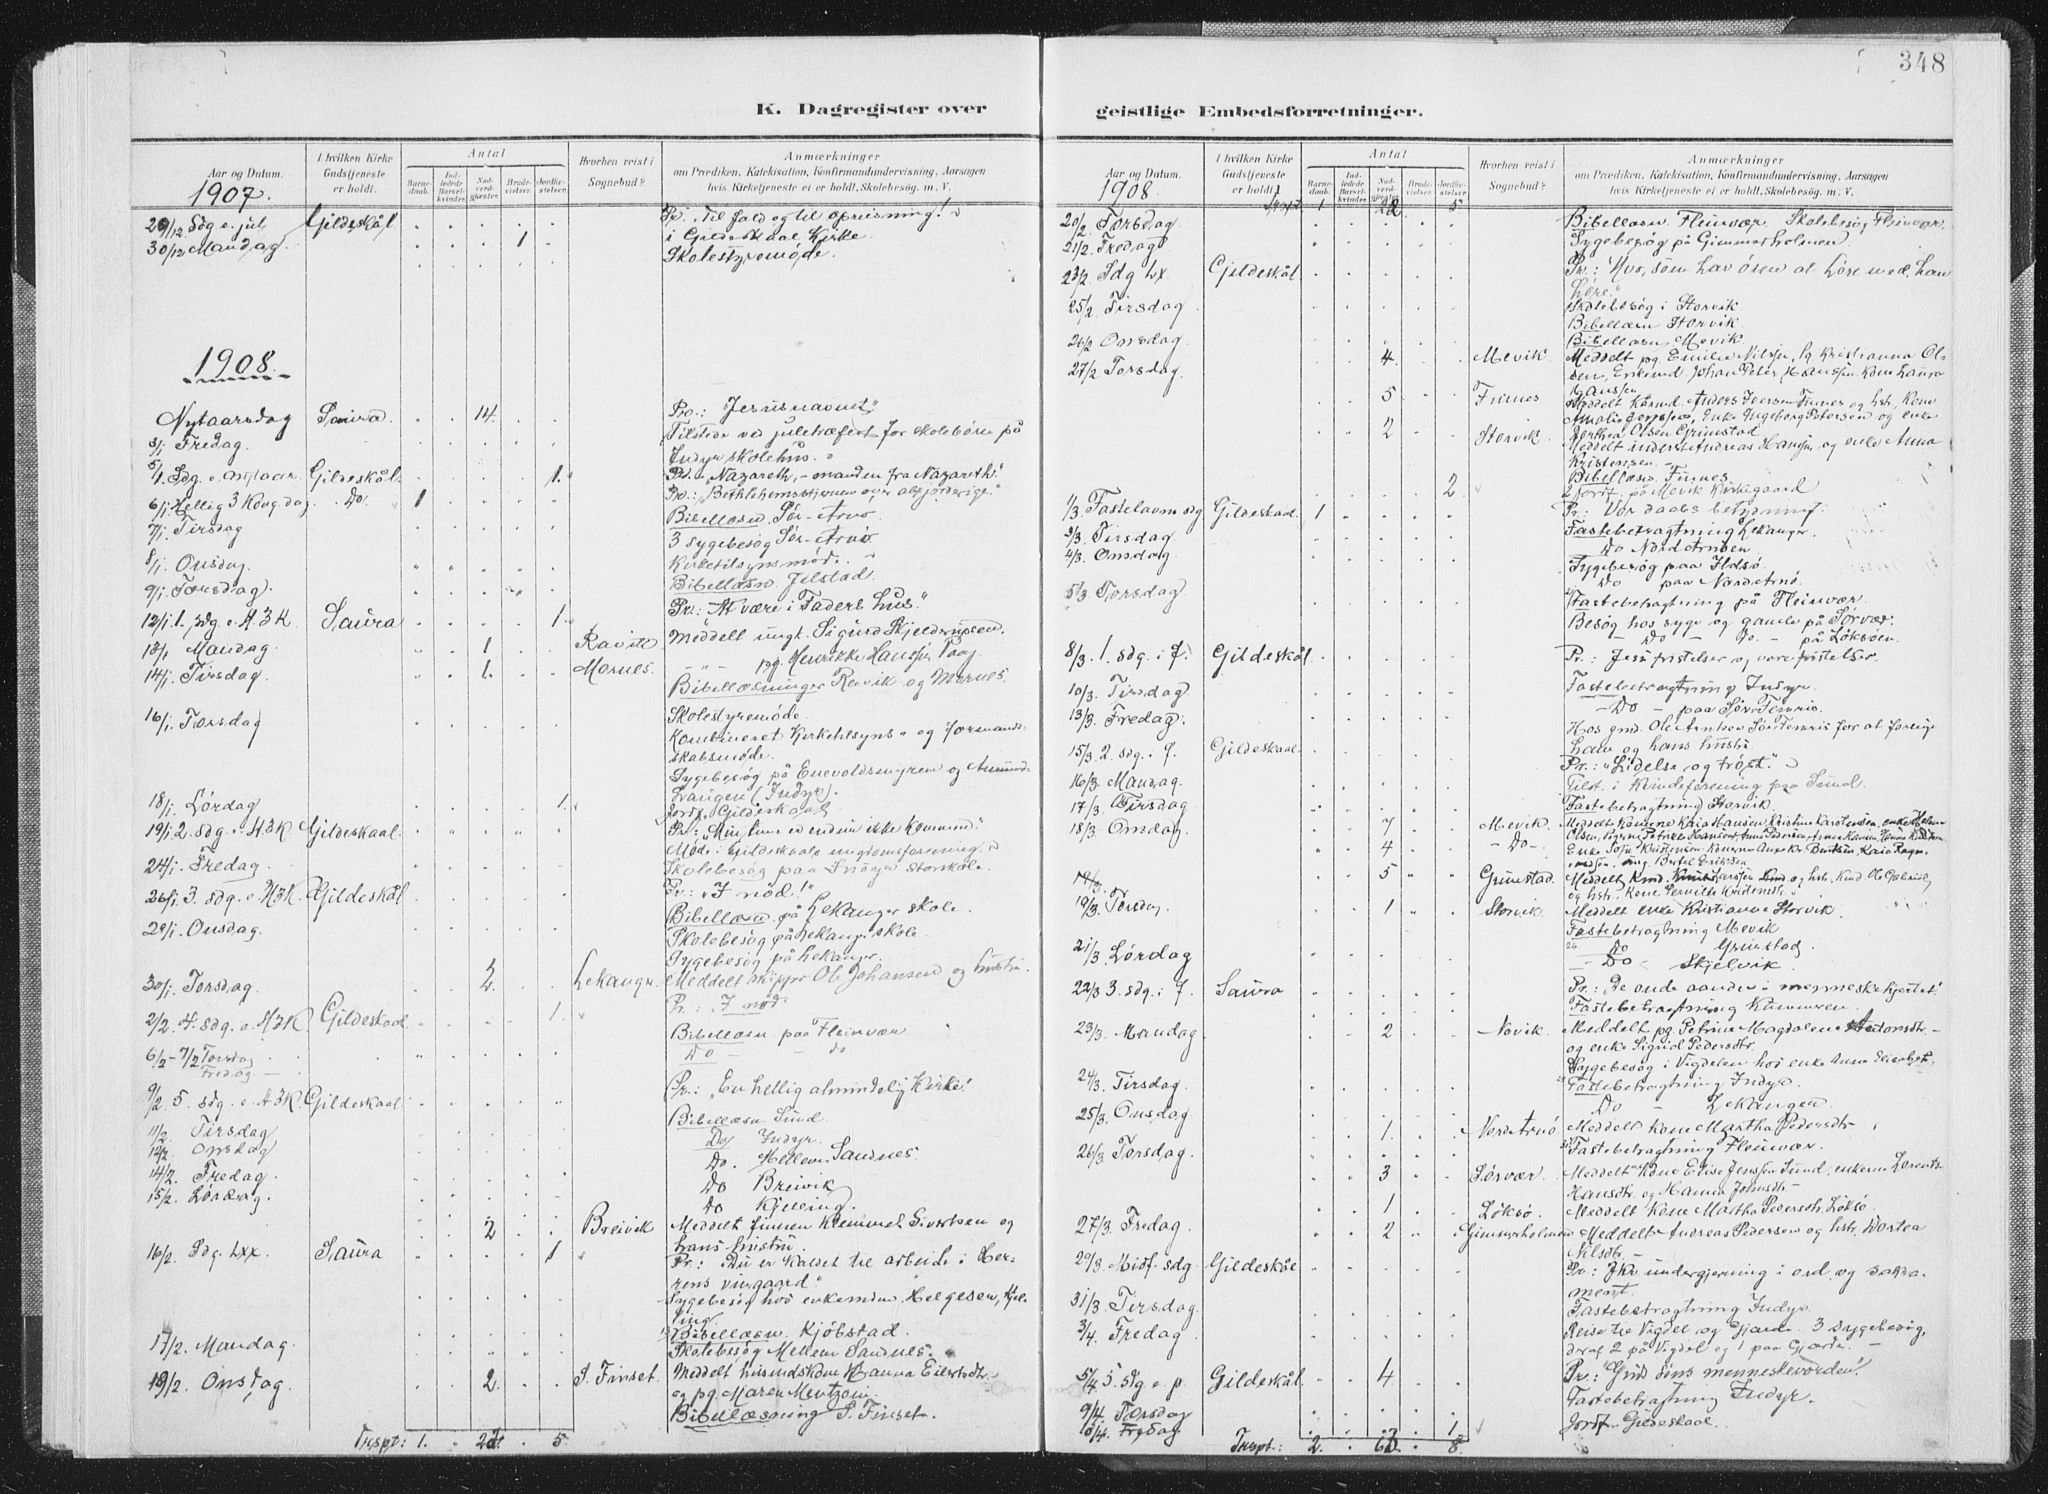 348
K. Dagregister over
geistlige Embedsforretninger.
Aar og Datum.
I hvilken Kirke Gudstjeneste er holdt.
Antal
Barnedaab.
Indledede Barselkvinder.
Nadverdgjester.
Brudevielser.
Jordfæstelser.
Hvorhen reist i Sognebud?
Anmærkninger
om Prædiken, Katekisation, Konfirmandundervisning, Aarsagen
hvis Kirketjeneste ei er holdt, Skolebesøg. m. V.
1907.
29/12 Sdg e. jul Gildeskål Pr: Til fald og til opreisning!
30/12 Mandag 1 i Gildeskaal Kirke.
Skolestyremøde.
1908.
Nytaarsdag Saura 14. Pr.: "Jesusnavnet"
3/1 Fredag. Tilstede ved juletræfest for skolebørn på
Indyr skolehus.
5/1. Sdg. e. nytaar Gildeskål. 1. Pr. "Nazareth, - manden fra Nazareth."
6/1 Hellig 3 Kong. dag. Do. 1 Pr.: "Bethlehemsstjernen
7/1 Tirsdag Bibellæsn. Sør-Arnø.
3 sygebesøg Sør-Arnø
8/1. Onsdag. Kirketilsynsmøde.
9/1. Torsdag. Bibellæsn. Jelstad.
12/1. 1. sdg. e. H.3K. Saura 1. Pr.: At være i Faders hus."
13/1 Mandag. 1 Meddelt ungk. Sigurd Skjeldrupsen.
14/1. Tirsdag. 1. Mornes. - " - pg. Henrikke Hansen
Bibellæsninger Reivik og Mornes.
16/1. Torsdag Skolestyremøde.
Kombineret Kirketilsyns- og formand-
skabsmøde.
Sygebesøg på Enevoldsmyren og
(Indyr).
18/1. Lørdag 1. Jordf. Gildeskaal
19/1. 2. sdg. e. H.3K Gildeskaal. Pr: "Min time er endnu ikke kommen."
Møde i Gildeskaals ungdomsforening.
24/1. Fredag. Skolebesøg paa Inndyr Storskole.
26/1. 3. sdg. e. H3K. Gildeskål Pr.: "I nød!"
29/1. Onsdag. Bibellæsn på Lekanger skole.
Skolebesøg på Lekanger skole.
Sygebesøg på Lekanger.
30/1. Torsdag. 2. Lekangr. Meddelt skipper Ole Johansen og hustru.
2/2. 4. sdg. e. H3K. Gildeskaal 1. Pr.: I nød.
6/2 - 7/2 Torsdag Bibellæsn. paa Fleinvær
Fredag - Do - - do.
9/2 5. sdg. e. H3K. Gildeskaal. Pr.: "En hellig almindelig kirke!
11/2. Tirsdag Bibellæsn. Sund.
12/2. Onsdag Do/ Indyr.
14/2. Fredag Do. Mellem Sandnes.
15/2. Lørdag. Do Breivik
Do Kjelling.
2 Breivik Meddelt finnen Klemmet Sivertsen og
hans hustru.
16/2. Sdg. Lxx. Saura 1 Pr: Du er kaldet til arbeide i Her-
rens vingaard."
Sygebesøg hos enkemdn. Helgesen, Kjel-
ling.
17/2. Mandag. Bibellæsn. Kjøbstad.
Skolebesøg Mellem Sandnes.
19/2. Onsdag. 2. S. Finset. Meddelt husmdskone Hanna Eilertsdtr.
og pg. Maren Mentzoni.
Bibellæsning S. Finset.
Trspt: 1. 22. 5.
Aar og Datum.
I hvilken Kirke Gudstjeneste er holdt.
Antal
Barnedaab.
Indledede Barselkvinder.
Nadverdgjester.
Brudevielser.
Jordfæstelser.
Hvorhen reist i Sognebud?
Anmærkninger
om Prædiken, Katekisation, Konfirmandundervisning, Aarsagen
hvis Kirketjeneste ei er holdt, Skolebesøg. m. V.
1908.
Trspt. 1 22 5
20/2. Torsdag Bibellæsn. Fleinvær. Skolebesøg Fleinvær.
21/2. Fredag Sygebesøg på Gimmerholmen.
23/2 Sdg Lx. Gjldeskål Pr.: "Hvo, som har øren at høre med, han
høre."
25/2. Tirsdag Skolebesøg i Storvik
Bibellæsn Storvik
26/2 Onsdag Bibellæsn. Mevik.
27/2 Torsdag. 4. Mevik. Meddelt pg. Emilie Nilsen, pg. Kristianna Ol-
sen, Enkemd. Johan Peter Hansen, kone Laura
Hanssen
5 Finnes Meddelt Kårmd. Anders Iversen Finnes og hstr, Kone
Amalie Jensen, Enke Ingeborg Petersen og enke
Dorthea Olsen Grimstad
2 Storvik Meddelt inderst Andreas Hansen og enke Anna
Kristensen.
Bibellæsn. Finnes.
2 2 jordf. på Mevik kirkegaard
1/3. Fastelavns sdg Gildeskaal. 1 Pr: Vor daabs betydning.
3/3. Tirsdag Fastebetragtning Lekanger.
4/3. Onsdag Do Nord Arnøen
Sygebesøg paa Ildsø.
5/3 Torsdag Do paa Nordarnø.
Fastebetragtning på Fleinvær.
Besøg hos syge og gamle på Sørvær.
- Do - - Do. - på Løksøen.
8/3. 1. sdg. i f. Gildeskål Pr.: Jesu fristelser og vore fristelser.
10/3. Tirsdag Fastebetragtning Indyr.
13/3. Fredag. - Do - paa Sør-Femris.
Hos gmd. Ole Arntsen Sør-Femris for at forlige
ham og hans hustru.
15/3. 2. sdg. i f. Gildeskaal. Pr.: "Lidelse og trøst."
16/3. Mandag. Tilst. i kvindeforening paa Sund.
17/3. Tirsdag Fastebetragtning Storvik.
18/3. Onsdag 7 Mevik. Meddelt konerne Kaia Hansen, Kristine Karstensen, enke Helene
4 - Do -
5 Grimstad.
19/3. Torsdag. 1 Storvik. Meddelt enke Kristianne Storvik.
Fastebetragtning Mevik
Do Grimstad
21/3. Lørdag - Do - Skjelvik.
22/3 3. sdg. i f. Saura Pr.: De onde aander i menneskehjertet!
Fastebetragtning
23/3. Mandag 2 Novik Meddelt pg. Petrine Magdalene Antonsdtr. -
og enke Sigrid Pedersdtr.
Sygebesøg i Vigdelen hos enke Anne Elisabet.
24/3. Tirsdag. Fastebetragtning Indyr.
25/3. Onsdag Do - Lekangen
26/3 Torsdag. 1. Nordarnø Meddelt kone Martha Pedersdtr.
Fastebetragtning Fleinvær.
3 Sørvær. Meddelt Kone Elise Jensen Sund, enkerne Lorents
Hansdtr. og Hanna Johnsdtr -
27/3. Fredag 1 Løksø. Meddelt Kone Martha Pedersdtr. Løksø.
2 Gimmerholmen Meddelt Andreas Pedersen og hstr. Dortea
Nilsdtr. -
29/3. Midf. sdg. Gildeskål Pr.: Jkr. undergjerning i ord og sakra-
ment.
31/3. Tirsdag. Fastebetragtning Indyr
3/4. Fredag Reise til Vigdel og Gjærde. 3 sygebesøg,
deraf 2 på Vigdel og 1 paa Gjærde. -
5/4 5. sdg. e. p. Gildeskål 4 Pr: "Guds Søns menneskevorden!"
9/4. Torsdag Fastebetragtning Indyr.
10/4. Fredag 1 Jordf. Gildeskaal.
Trspt: 2. 8.